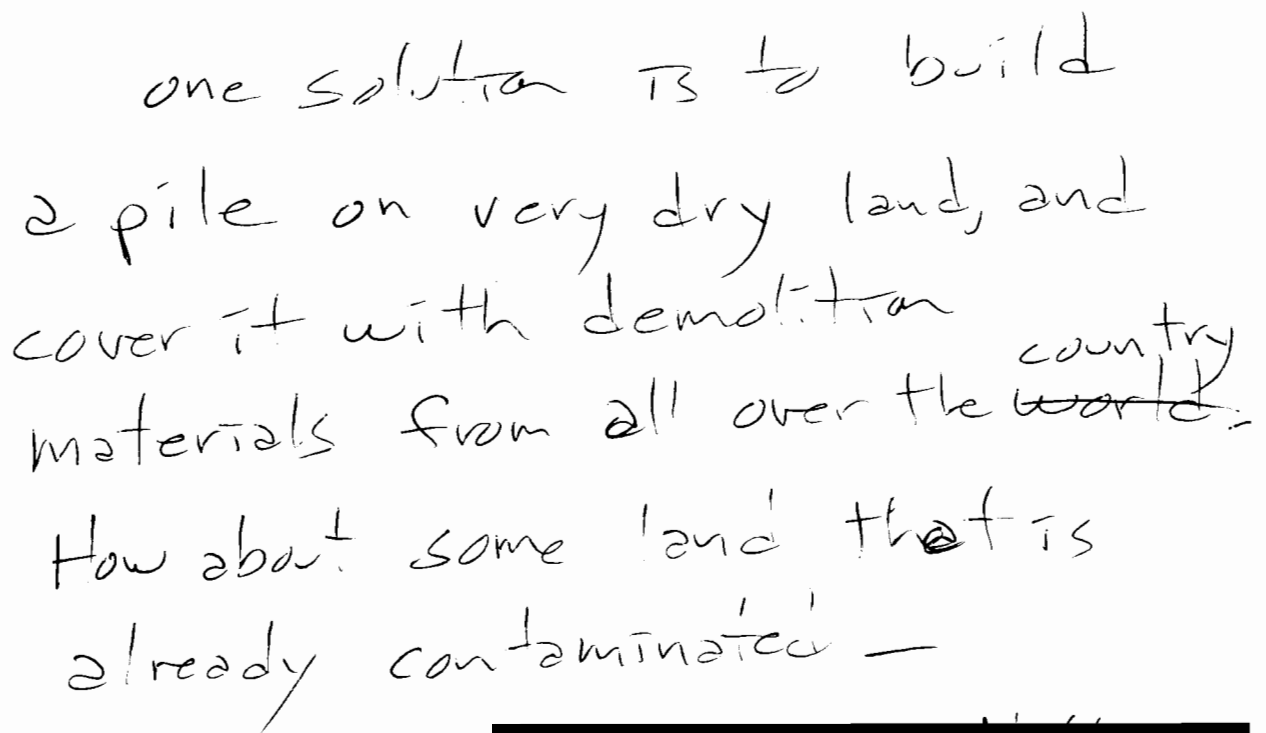 one solution is to build
a pile on very dry land, and
cover it with demolition
country
materials from all over the world.
How about some land that is
already contaminated —